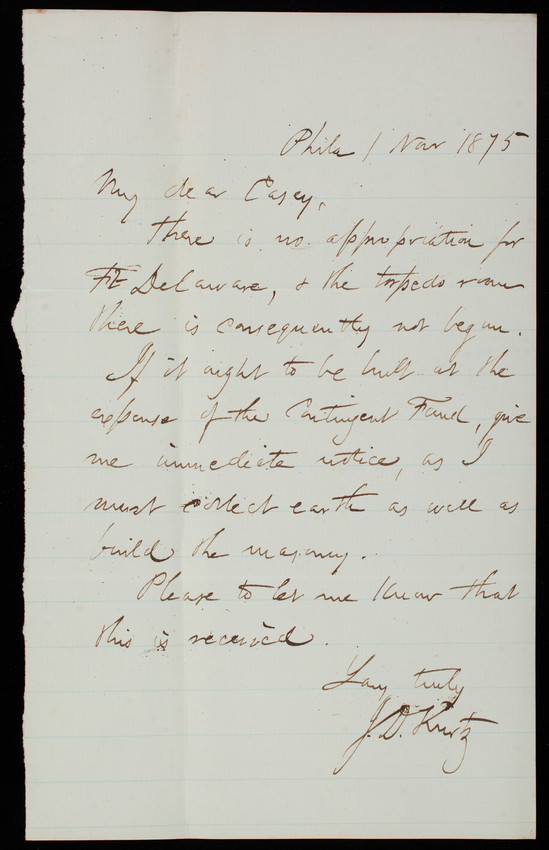 Phila 1 Nov 1875
My dear Casey,
There is no appropriation for
Ft Delaware, & the torpedo room
there is consequently not begun.
If it ought to be built at the
expense of the Contingent Fund, give
me immediate notice, as I
must collect earth as well as
build the masonry.
Please to let me know that
this is received.
truly
J. D. Kurtz